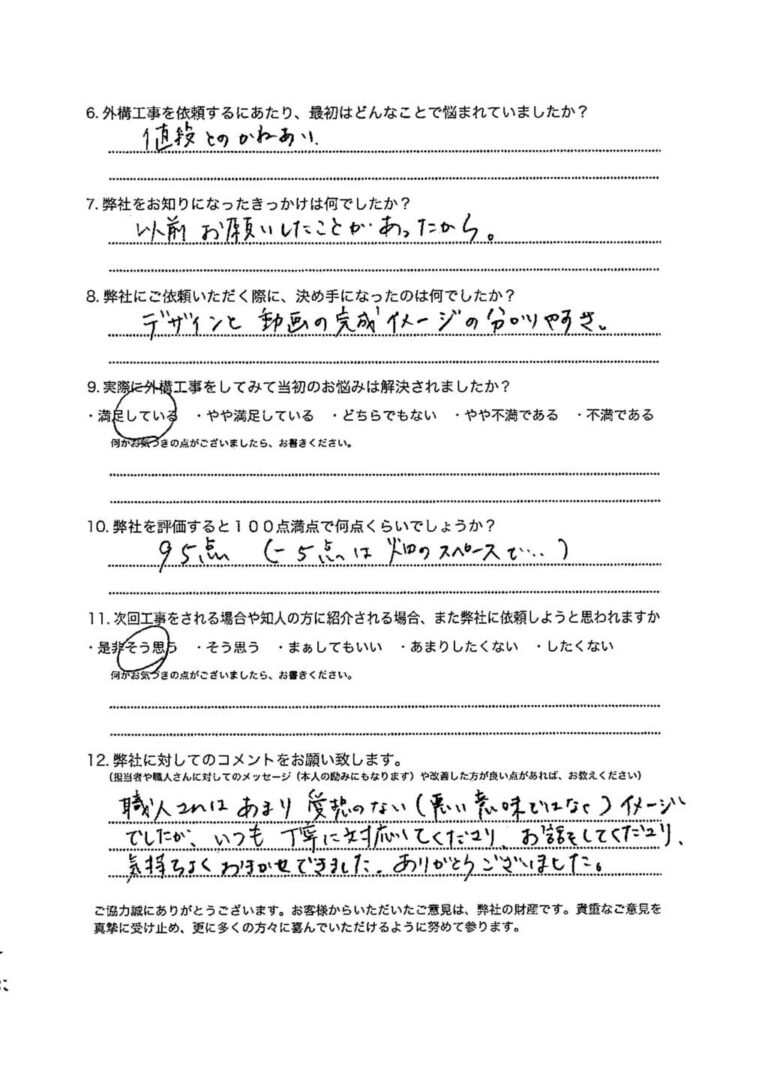 6. 外構工事を依頼するにあたり、最初はどんなことで悩まれていましたか？
値段とのかねあい.
7. 弊社をお知りになったきっかけは何でしたか？
以前お願いしたことがあったから。
8. 弊社にご依頼いただく際に、決め手になったのは何でしたか？
デザインと動画の完成イメージの分かりやすさ。
9. 実際に外構工事をしてみて当初のお悩みは解決されましたか？
・満足している ・やや満足している ・どちらでもない ・やや不満である ・不満である
何かお気づきの点がございましたら、お書きください。
10. 弊社を評価すると１００点満点で何点くらいでしょうか？
95点 (−5点は畑のスペースで…)
11. 次回工事をされる場合や知人の方に紹介される場合、また弊社に依頼しようと思われますか
・是非そう思う ・そう思う ・まぁしてもいい ・あまりしたくない ・したくない
何かお気づきの点がございましたら、お書きください。
12. 弊社に対してのコメントをお願い致します。
（担当者や職人さんに対してのメッセージ（本人の励みにもなります）や改善した方が良い点があれば、お教えください）
職人さんはあまり愛想のない(悪い意味ではなく)イメージ
でしたが、いつも丁寧に対応してくださり、お話をしてくださり、
気持ちよくおまかせできました。ありがとうございました。
ご協力誠にありがとうございます。お客様からいただいたご意見は、弊社の財産です。貴重なご意見を
真摯に受け止め、更に多くの方々に喜んでいただけるように努めて参ります。